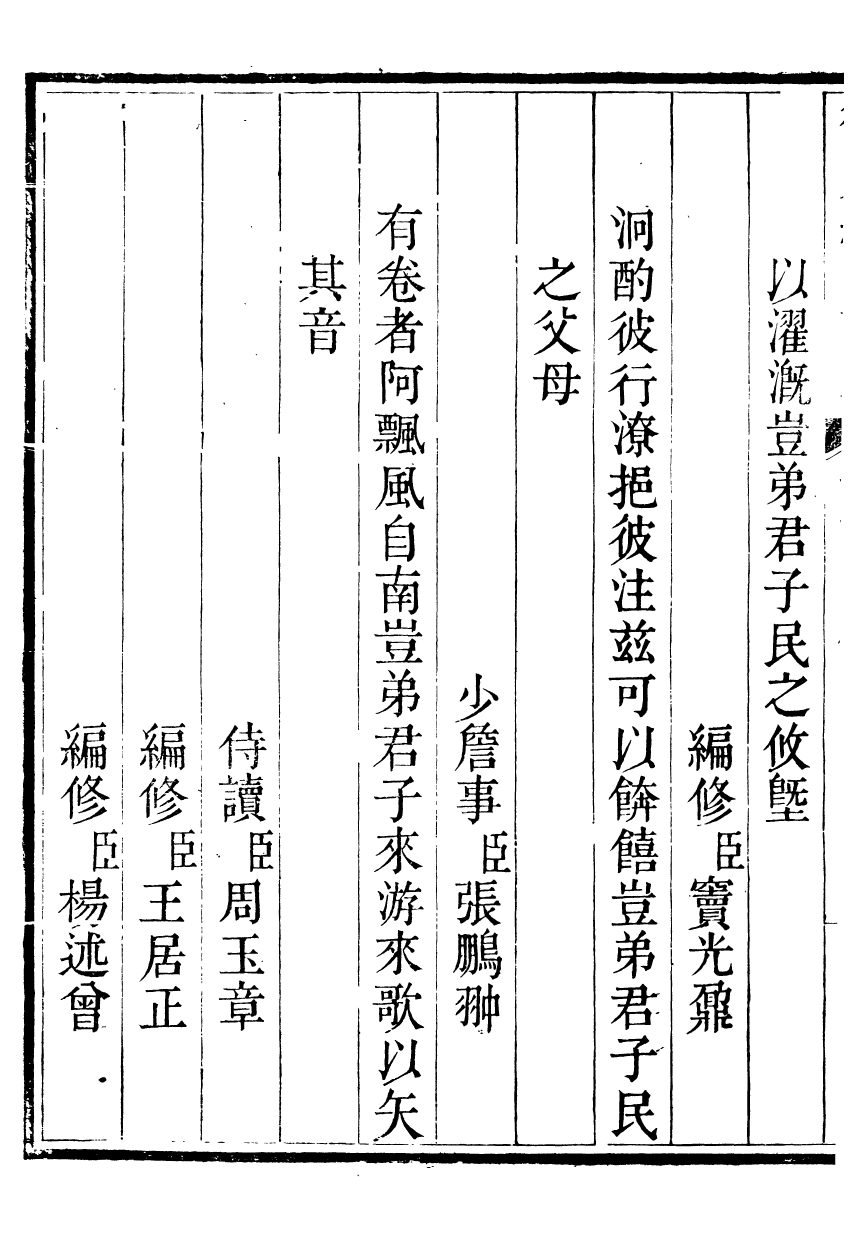 以濯溉豈弟君子民之攸塈
編修臣竇光鼐
泂酌彼行潦挹彼注茲可以餴饎豈弟君子民
之父母
少詹事臣張鵬翀
有卷者阿飄風自南豈弟君子來游來歌以矢
其音
侍讀臣周玉章
編修臣王居正
編修臣楊述曾